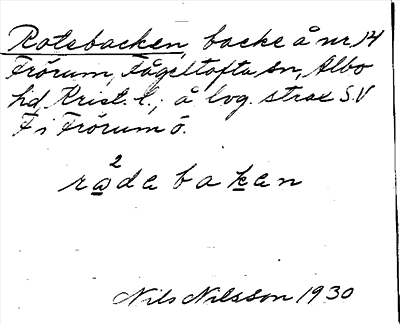 Rotsbacken, backe å nr 14
Frörum, Fågeltofta sn, Albo
hd, Krist. l.; å log. strax S.V
F i Frörum ö.
2
radabakan
Nils Nilsson 1930